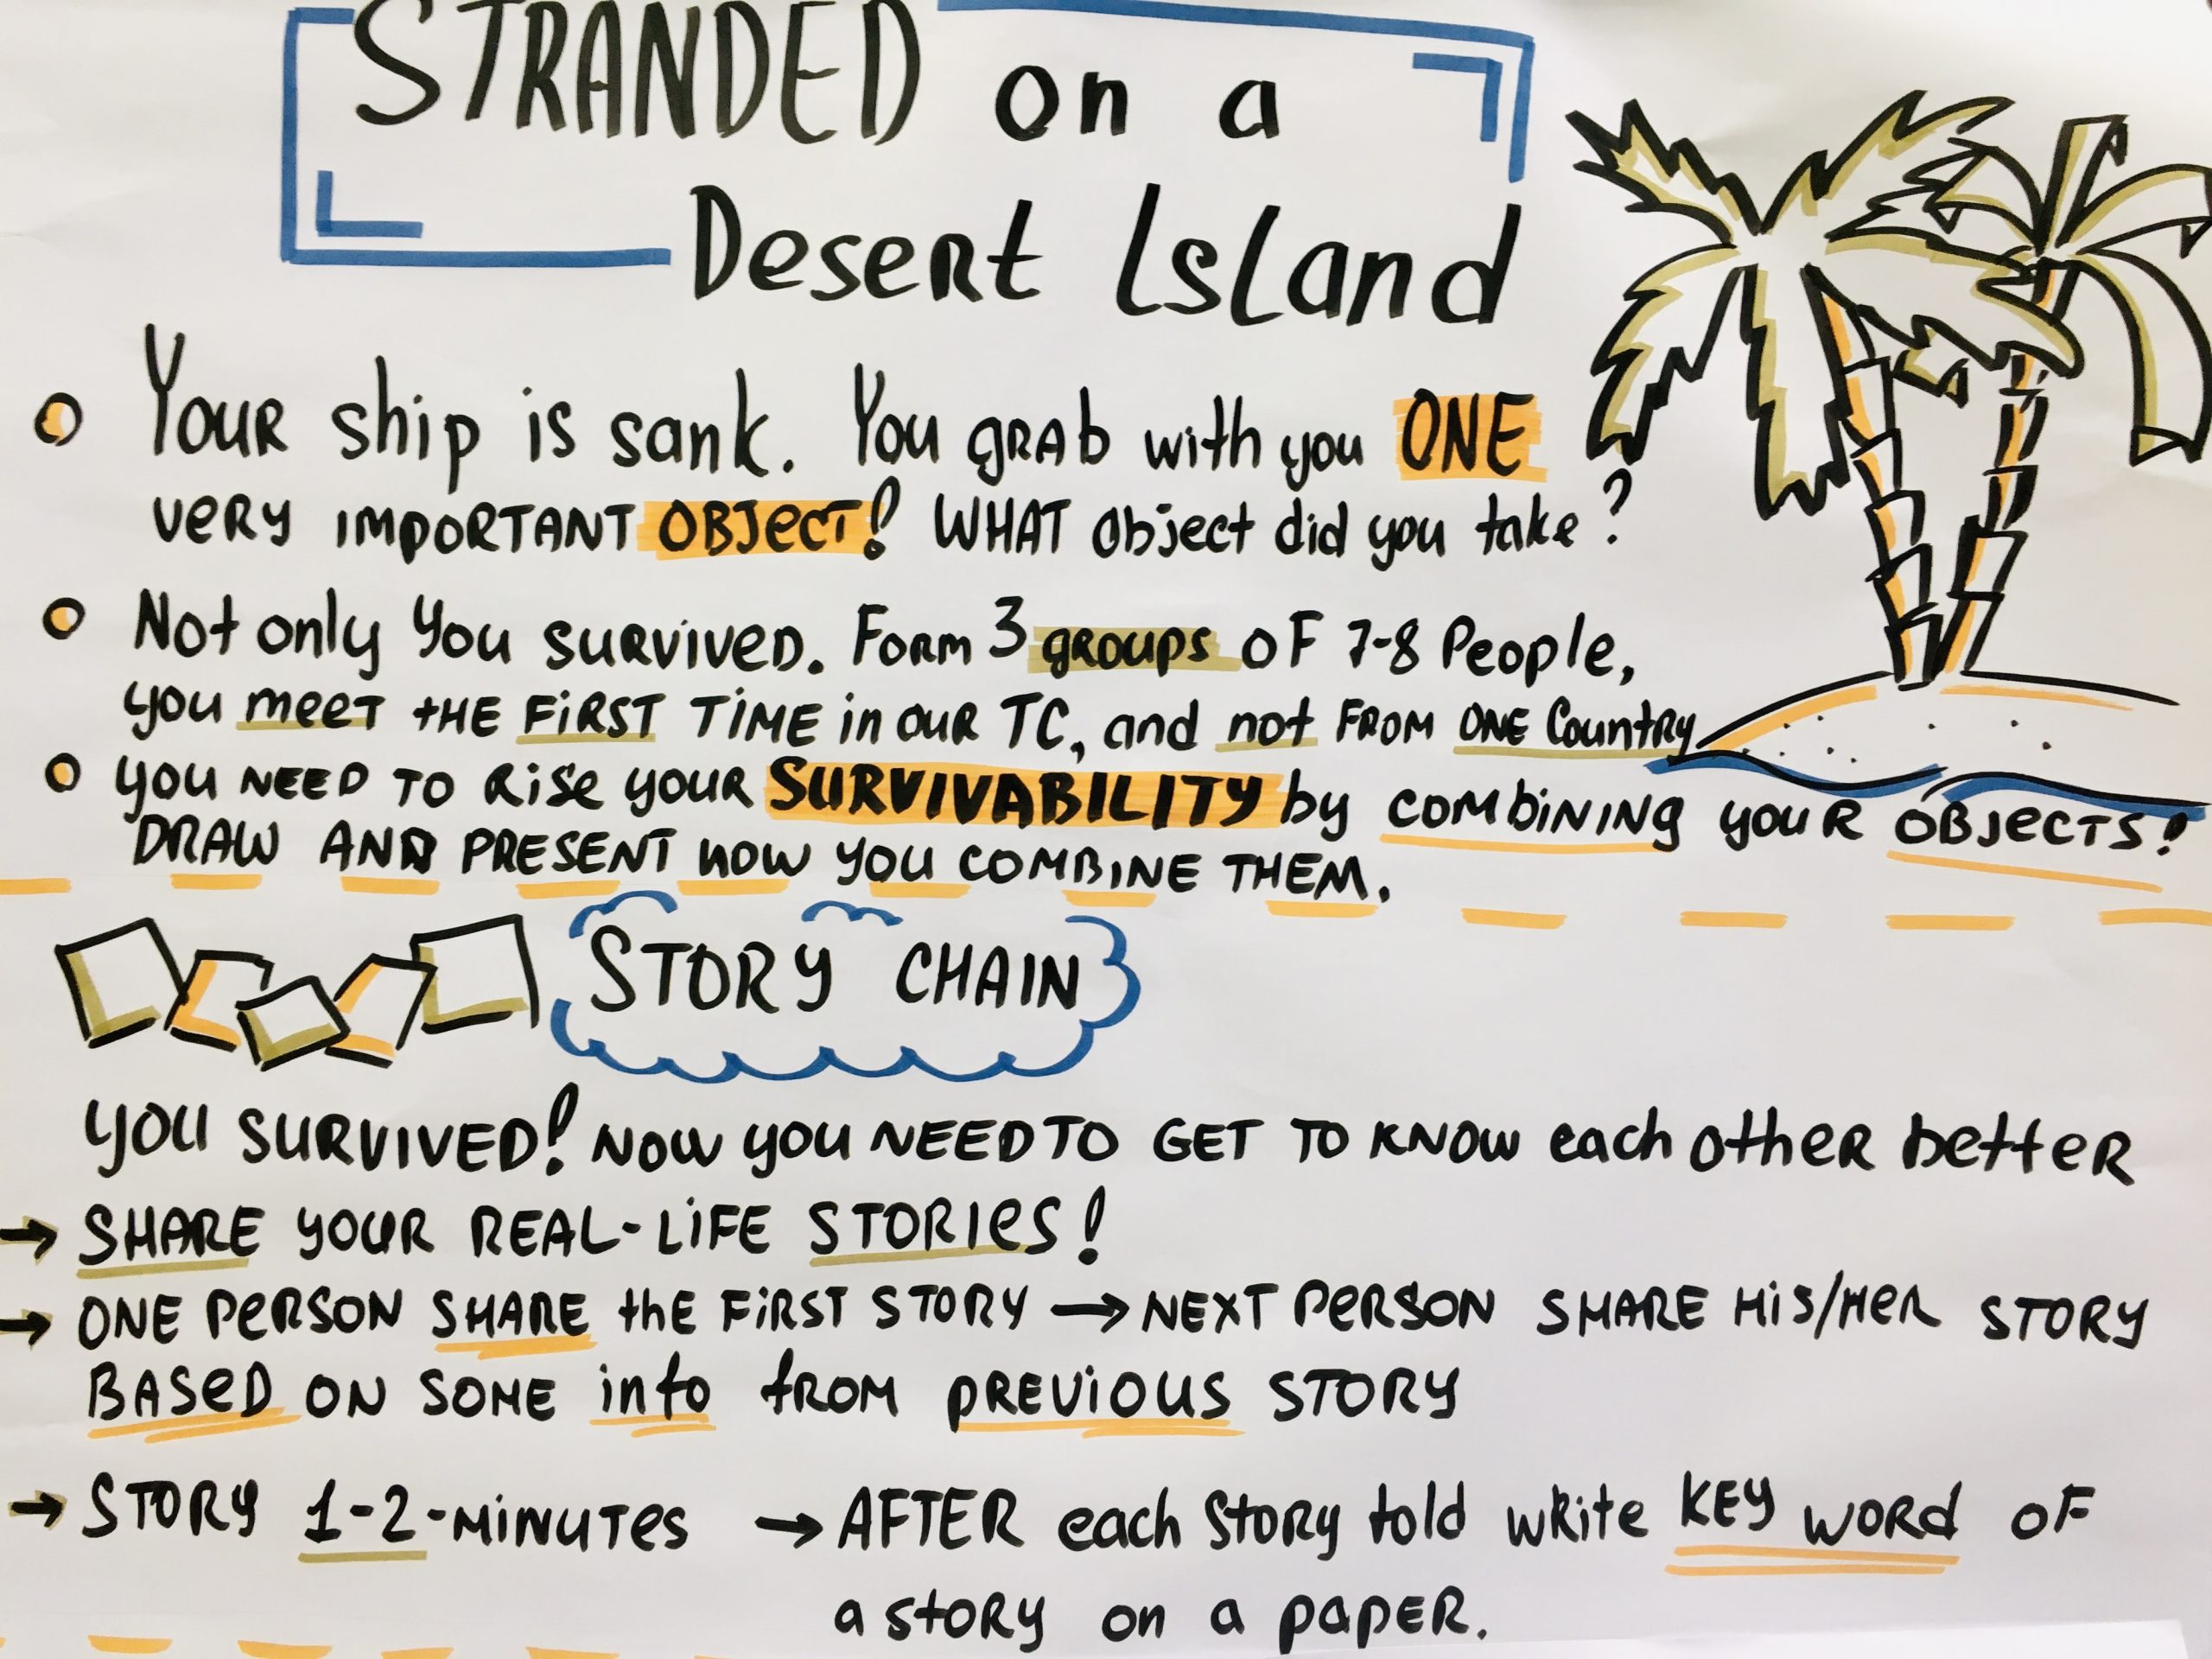 STRANDED on a
Desert Island
Your ship is sank. You grab with you ONE
very IMPORTANT OBJECT! WHAT object did you take?
Not only you survived. Form 3 groups of 7-8 People,
you meet the FIRST TIME in our TC, and not FROM ONE Country
you NEED TO Rise your SURVIVABILITY by combining your OBJECTS!
DRAW AND PRESENT how you COMBINE THEM.
STORY CHAIN
you SURVIVED! Now you NEED TO GET TO KNOW each other better
→ SHARE your REAL-LIFE STORIES!
→ ONE PERSON SHARE the FIRST STORY → NEXT PERSON SHARE His/Her STORY
BASED ON SOME info from PREVIOUS STORY
→ STORY 1-2-MINUTES → AFTER each Story told write KEY WORD OF
a story on a paper.